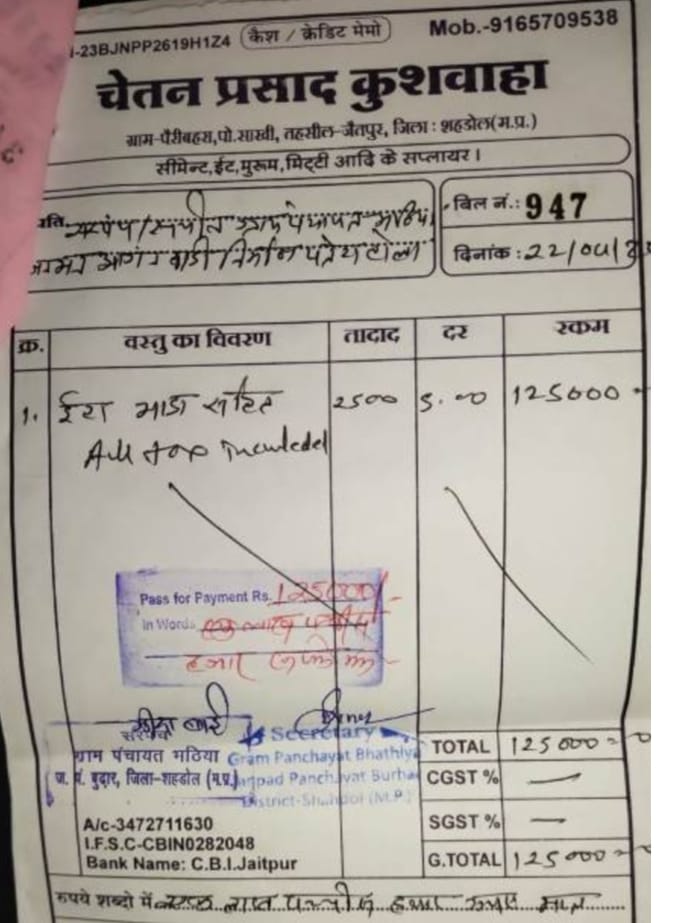 -23BJNPP2619H1Z4 कैश / क्रेडिट मेमो Mob.-9165709538
चेतन प्रसाद कुशवाहा
ग्राम-पैरीबहरा,पो.साखी, तहसील-जैतपुर, जिला : शहडोल(म.प्र.)
सीमेन्ट,ईट,मुरूम,मिट्टी आदि के सप्लायर ।
प्रति सरपंच/सचिव ग्राम पंचायत भठिया
बिल नं.: 947
निर्माण
दिनांक : 22/04/
क्र. वस्तु का विवरण तादाद दर रकम
1. ईटा भाडा सहित 2500 5.00 125000
All tax Included
Pass for Payment Rs. 125000/-
In Words एक लाख पच्चीस
हजार
सरपंच
ग्राम पंचायत भठिया
ज. पं. बुढार, जिला-शहडोल (म.प्र.)
Secretary
Gram Panchayat Bhathiya
Janpad Panchayat Burhar
District-Shahdol (M.P.)
TOTAL 125000=0
CGST % —
SGST % —
G.TOTAL 125000=0
A/c-3472711630
I.F.S.C-CBIN0282048
Bank Name: C.B.I.Jaitpur
रूपये शब्दो में एक लाख पच्चीस हजार रूपए मात्र